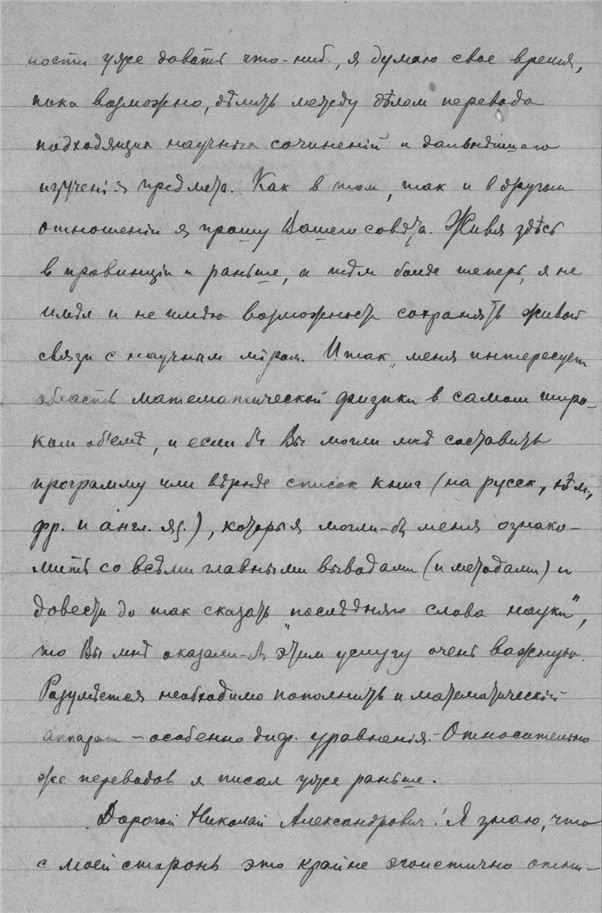 ности уже давать что-ниб., я думаю свое время,
пока возможно, дѣлить между дѣлом перевода
подходящих научных сочиненій и дальнѣйшаго
изученія предмета. Как в том, так и в другом
отношеніи я прошу Вашего совѣта. Живя здѣсь
в провинціи и раньше, а тѣм более теперь, я не
имѣл и не имѣю возможность сохранять живой
связи с научным міром. Итак, меня интересует
область математической физики в самом широ-
ком об'емѣ, и если бы Вы могли мнѣ составить
программу или вѣрнѣе список книг (на русск., нѣм.,
фр. и англ. яз.), которыя могли-бы меня ознако-
мить со всѣми главными выводами (и методами) и
довести до так сказать „послѣдняго слова науки",
то Вы мнѣ оказали-бы этим услугу очень важную.
Разумѣется необходимо пополнить и математическій
аппарат – особенно диф. уравненія. – Относительно
же переводов я писал уже раньше.
Дорогой Николай Александрович! Я знаю, что
с моей стороны это крайне эгоистично отни-